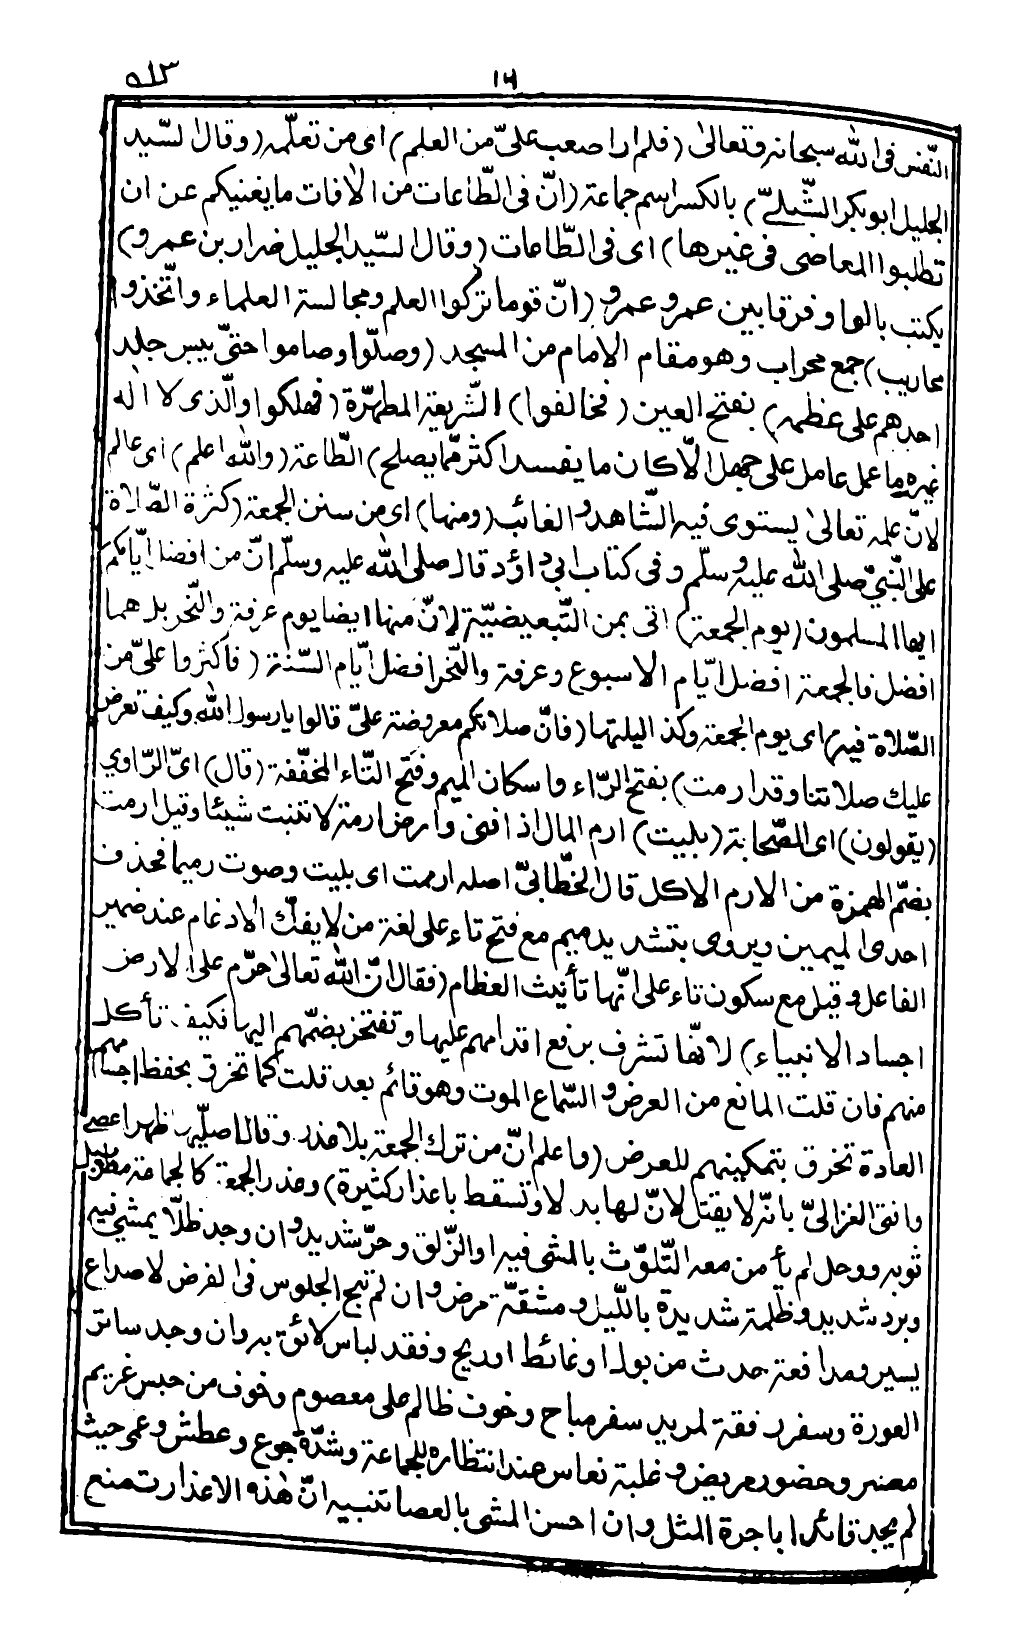 ١٦
النّفس فى الله سبحانه وتعالىٰ (فلم ارا صعب علىّ من العلم) اى من تعلّمه (وقال السّيد
الجليل ابو بكر الشّبلىّ) بالكسر اسم جماعة (انّ فى الطّاعات من الاٰفات ما يغنيكم عن ان
تطلبوا المعاصى فى غيرها) اى فى الطّاعات (وقال السّيد الجليل ضرار بن عمرو)
يكتب بالواو فرقا بين عمر وعمرو (انّ قوما تركوا العلم ومجالسة العلماء واتّخذوا
محاريب) جمع محراب وهو مقام الامام من المسجد (وصلّوا وصاموا حتّى يبس جلد
احدهم على عظمه) بفتح العين (فخالفوا) الشّريعة المطهّرة (فهلكوا والّذى لا اله
غيره ما عمل عامل على جهل الّا كان ما يفسد اكثر ممّا يصلح) الطّاعة (والله اعلم) اى عالم
لانّ علمه تعالىٰ يستوى فيه الشّاهد والغائب (ومنها) اى من سنن الجمعة (كثرة الصّلاة
على النّبىّ صلى الله عليه وسلّم وفى كتاب ابى داؤد قال صلى الله عليه وسلّم انّ من افضل ايّامكم
ايها المسلمون (يوم الجمعة) اتى بمن التّبعيضيّة لانّ منها ايضا يوم عرفة والنّحر بل هما
افضل فالجمعة افضل ايّام الاسبوع وعرفة والنّحر افضل ايّام السّنة (فاكثروا علىّ من
الصّلاة فيه) اى يوم الجمعة وكذا ليلتها (فانّ صلاتكم معروضة علىّ قالوا يا رسول الله وكيف تعرض
عليك صلاتنا وقد ارمت) بفتح الرّاء واسكان الميم وفتح التّاء المخفّفة (قال) اى الرّاوي
(يقولون) اى الصّحابة (بليت) ارم المال اذا فنى وارض ارمة لا تنبت شيئا وقيل ارمت
بضمّ الهمزة من الارم الاكل قال الخطّابىّ اصله ارممت اى بليت وصرت رميما فحذف
احدى الميمين ويروى بتشديد ميم مع فتح تاء على لغة من لا يفكّ الادغام عند ضمير
الفاعل وقيل مع سكون تاء على انّها تأنيث العظام (فقال انّ الله تعالىٰ حرّم على الارض
اجساد الانبياء) لانّها تشرف برفع اقدامهم عليها وتفتخر بضمّهم اليها فكيف تأكل
منهم فان قلت المانع من العرض والسّماع الموت وهو قائم بعد قلت كما تخرق بحفظ اجسامهم
العادة تخرق بتمكينهم للعرض (واعلم انّ من ترك الجمعة بلا عذر وقال اصلّيها ظهرا عصى
وافتى الغزالىّ بانّه لا يقتل لانّ لها بدلا وتسقط باعذار كثيرة) وعذر الجمعة كالجماعة مطر بلّ
ثوبه ووحل لم يأمن معه التّلوّث بالمشى فيه او الزّلق وحرّ شديد وان وجد ظلّا يمشى فيه
وبرد شديد وظلمة شديدة بالليل ومشقّة مرض وان لم تبح الجلوس فى الفرض لا صداع
يسير ومدافعة حدث من بول او غائط او ريح وفقد لباس لائق به وان وجد ساتر
العورة وسفر رفقة لمريد سفر مباح وخوف ظالم على معصوم وخوف من حبس غريم
معسر وحضور مريض وغلبة نعاس عند انتظاره للجماعة وشدّة جوع وعطش وعمى حيث
لم يجد قائدا باجرة المثل وان احسن المشى بالعصا تنبيه انّ هٰذه الاعذار تمنع